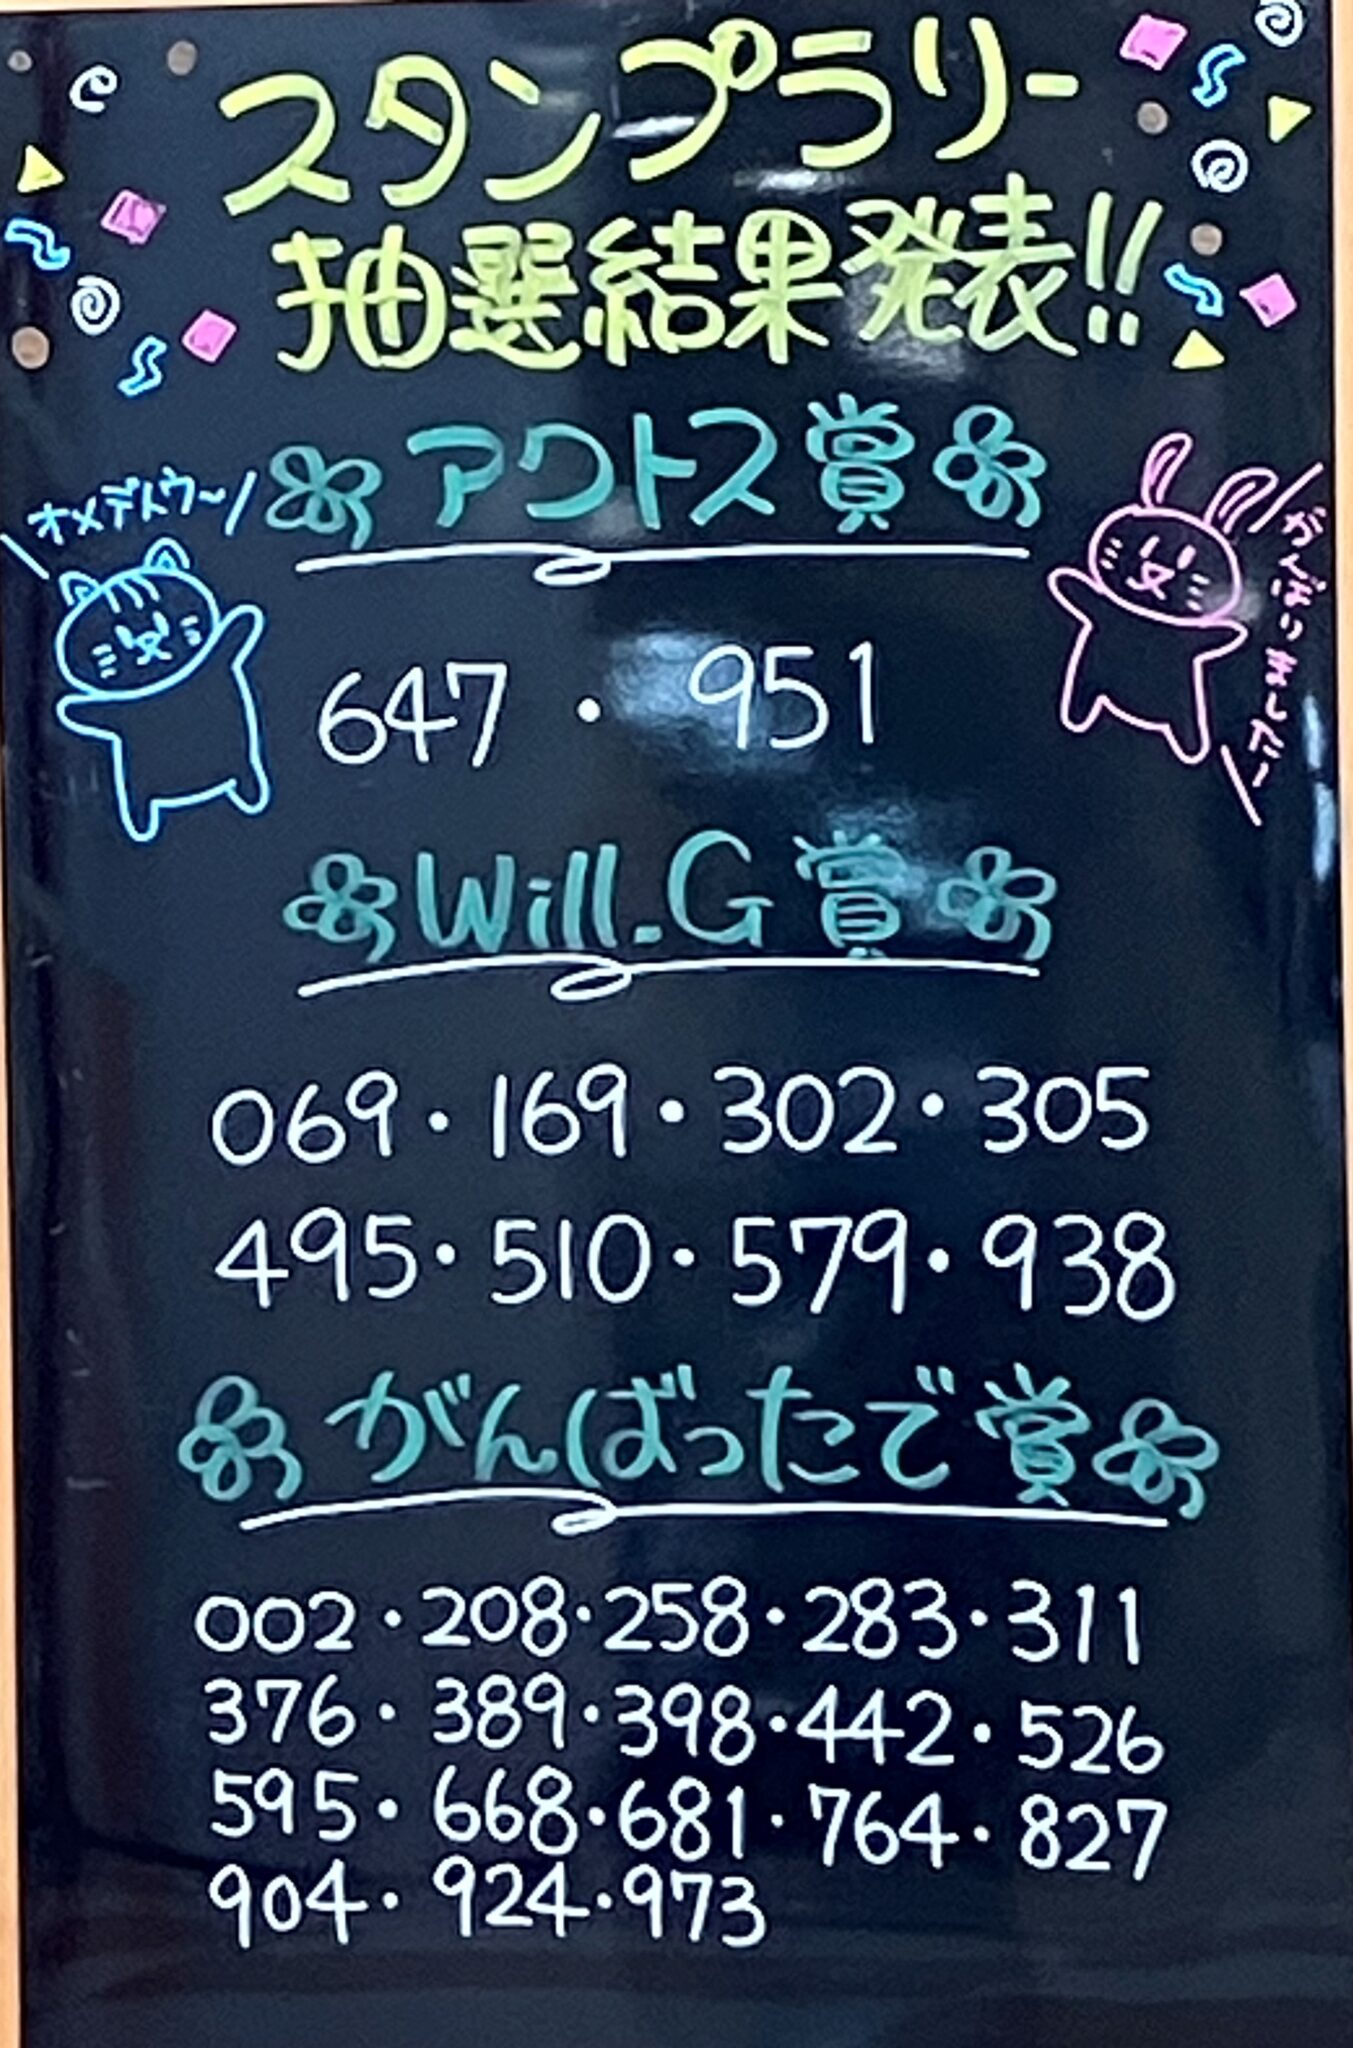 スタンプラリー
抽選結果発表!!
アクトス賞
オメデトウ～
がんばりましたー
647・951
Will_G賞
069・169・302・305
495・510・579・938
がんばったで賞
002・208・258・283・311
376・389・398・442・526
595・668・681・764・827
904・924・973